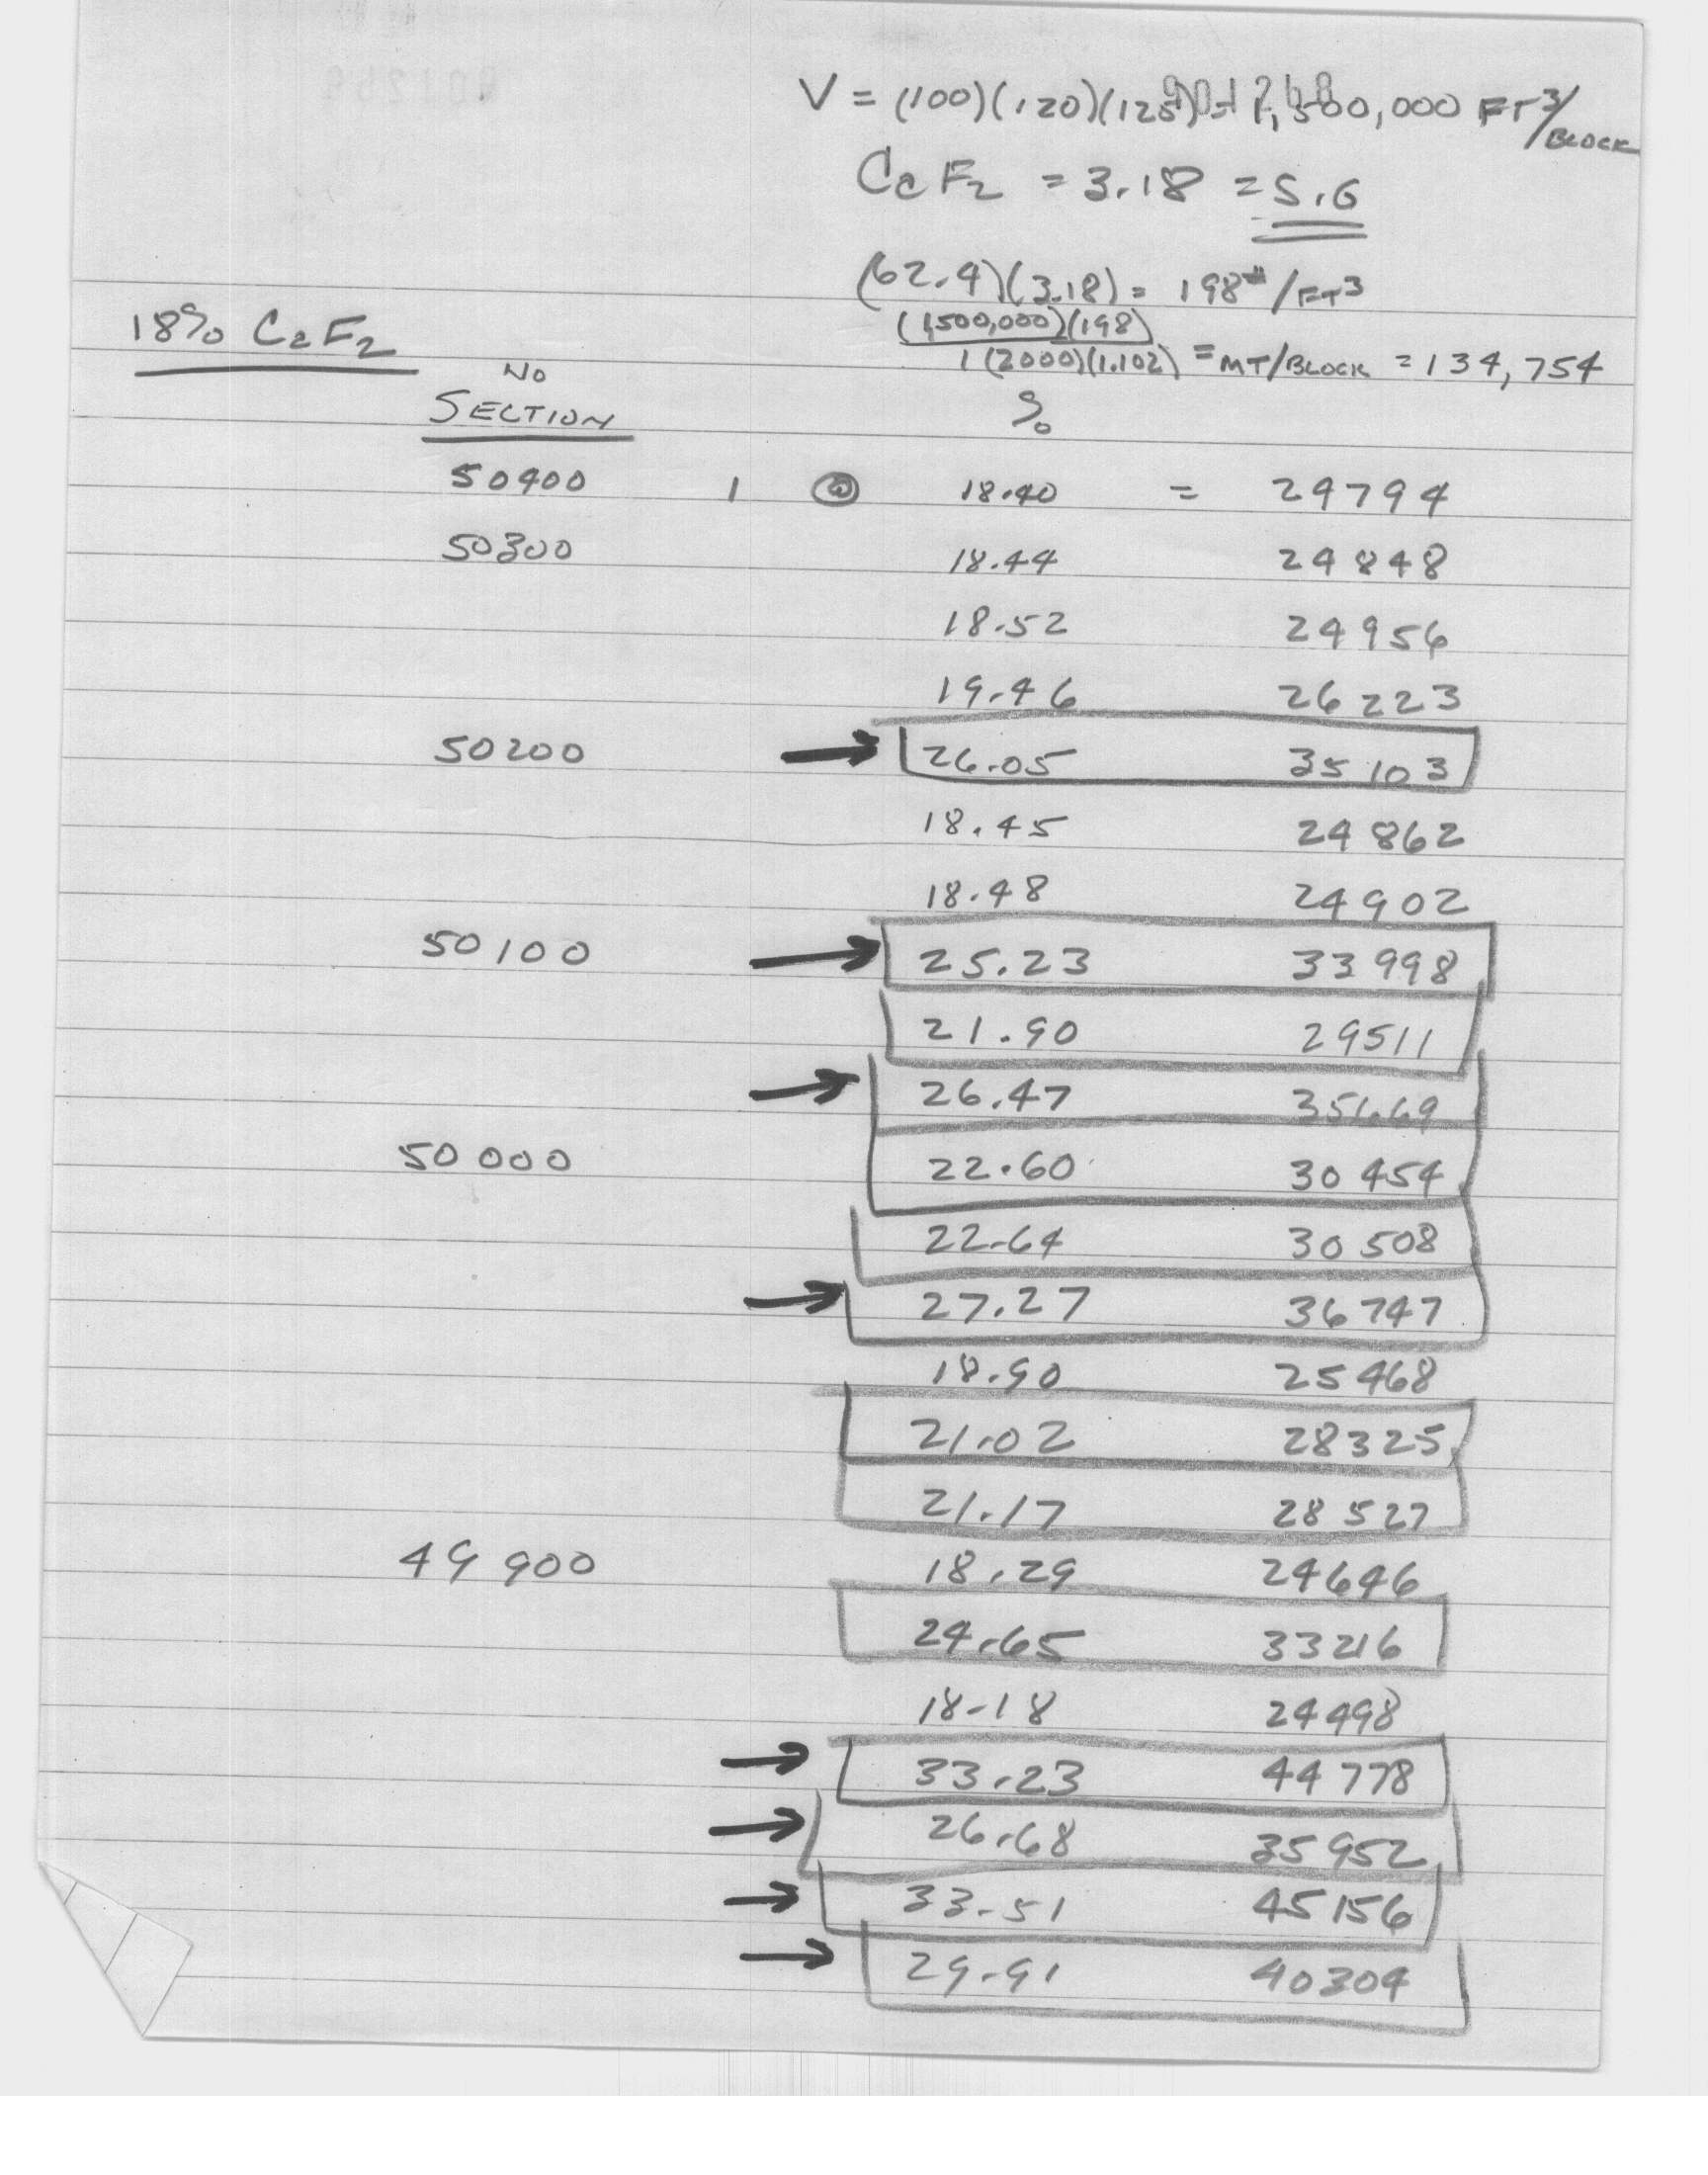 901268
V = (100)(120)(125) = 1,500,000 FT³/BLOCK
CaF₂ = 3.18 = S.G
(62.4)(3.18) = 198#/FT³
(1,500,000)(198)
1 (2000)(1.102) = MT/BLOCK = 134,754
18% CaF₂
NO
SECTION %
50400 1 @ 18.40 = 24794
50300 18.44 24848
18.52 24956
19.46 26223
50200 → 26.05 35103
18.45 24862
18.48 24902
50100 → 25.23 33998
21.90 29511
→ 26.47 35669
50000 22.60 30454
22.64 30508
→ 27.27 36747
18.90 25468
21.02 28325
21.17 28527
49900 18.29 24646
24.65 33216
18.18 24498
→ 33.23 44778
→ 26.68 35952
→ 33.51 45156
→ 29.91 40304